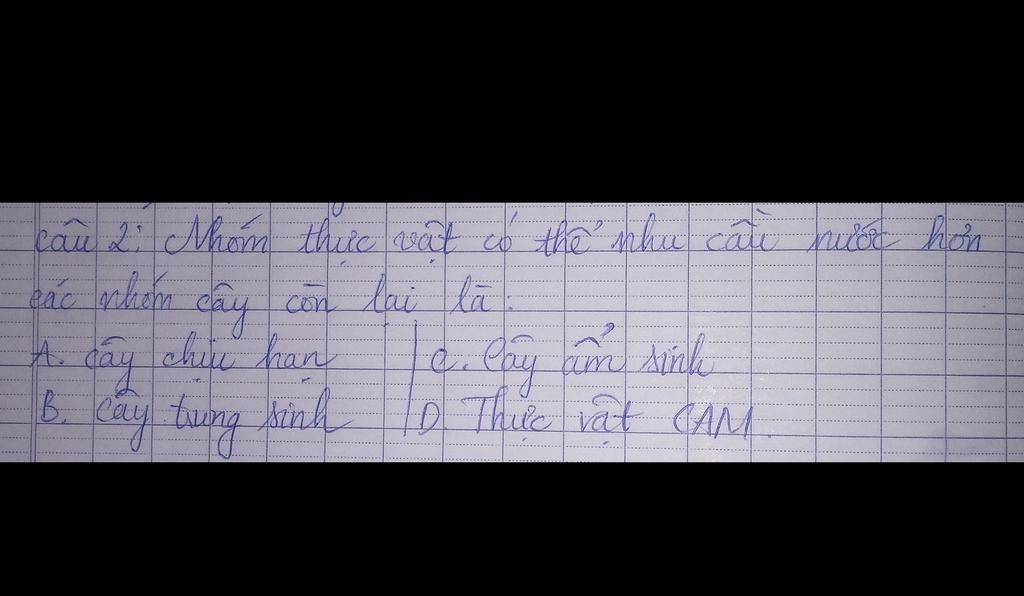 Câu 2: Nhóm thực vật có thể nhu cầu nước hơn
các nhóm cây còn lại là:
A. Cây chịu hạn | C. Cây ẩm sinh
B. Cây trung sinh | D. Thực vật CAM.